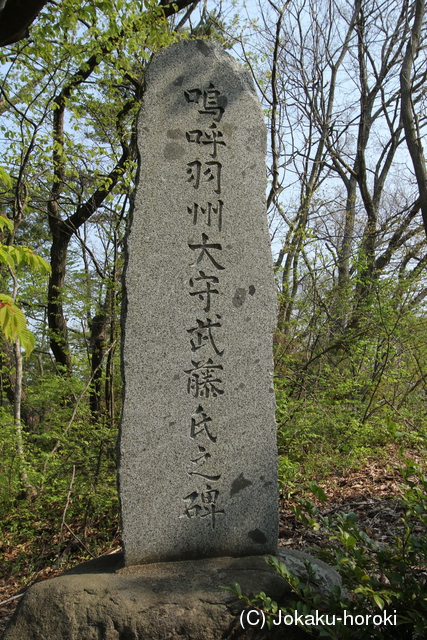 嗚呼羽州大守武藤氏之碑
(C)Jokaku-horoki